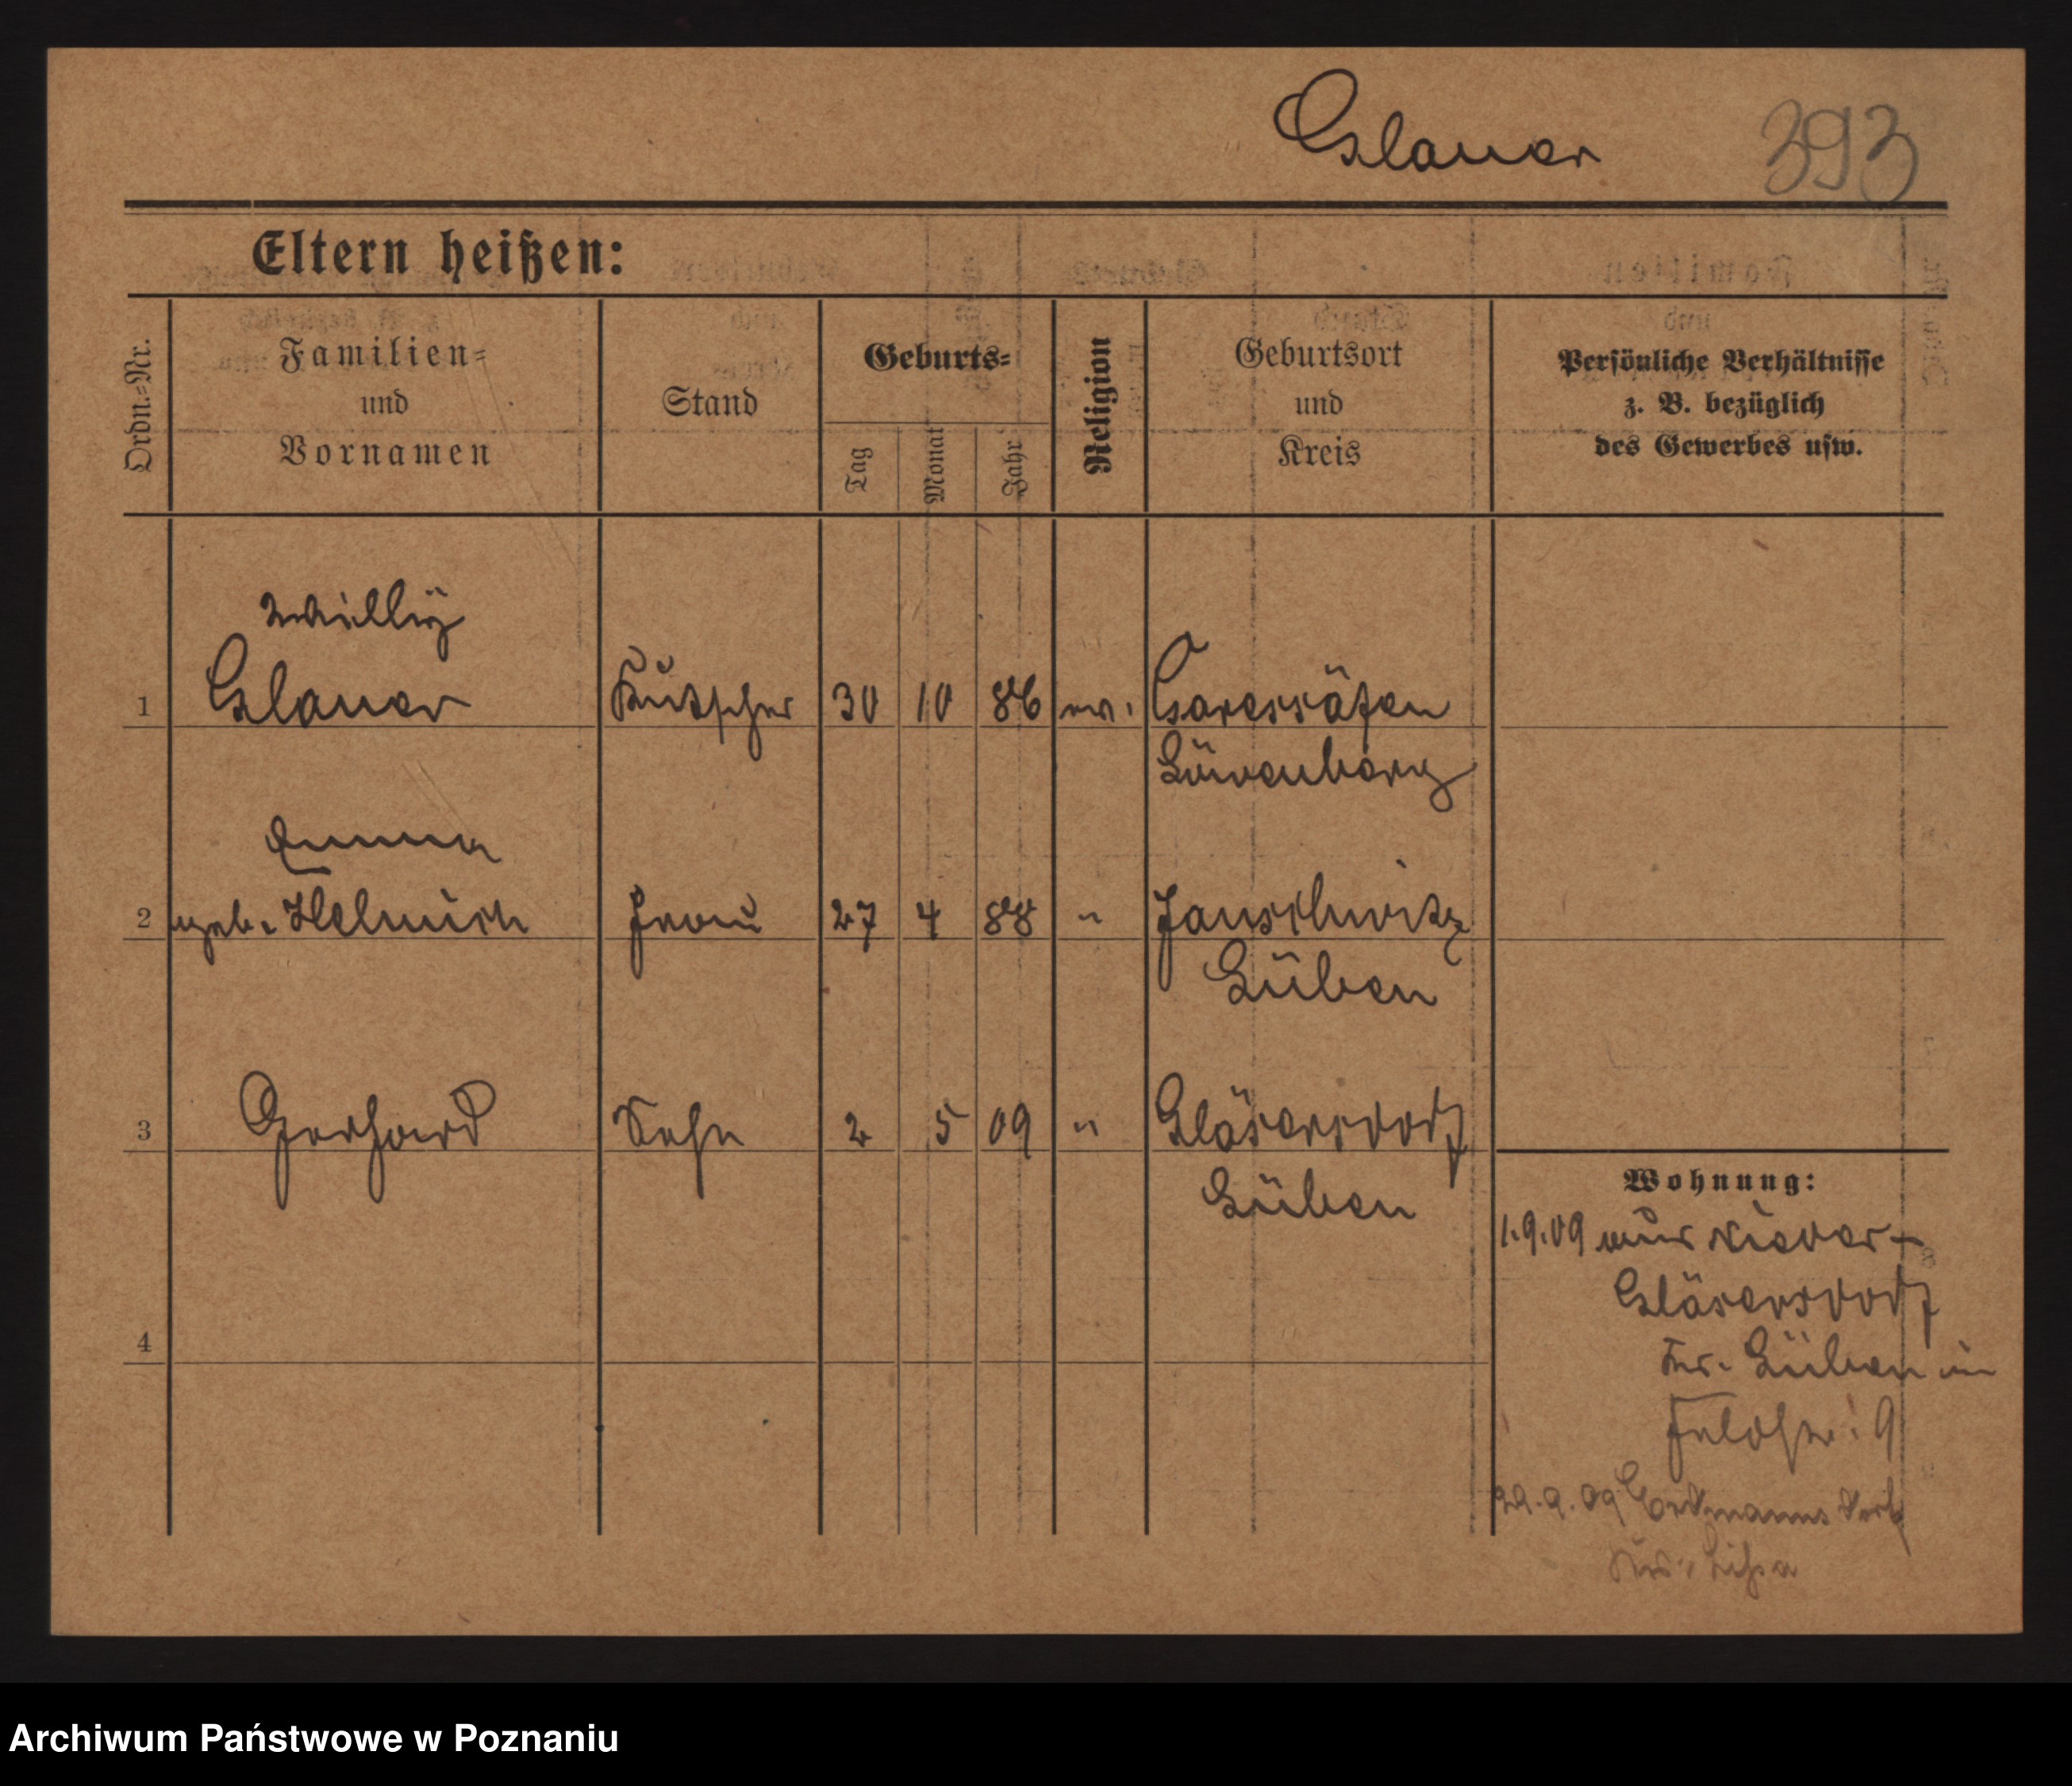 Glauer 393
Eltern heißen:
Ordn.=Nr.
Familien=
und
Vornamen
Stand
Geburts=
Tag
Monat
Jahr
Religion
Geburtsort
und
Kreis
Persönliche Verhältnisse
z. B. bezüglich
des Gewerbes usw.
Willÿ
1 Glauer Kutscher 30 10 86 ev.
Löwenberg
Emma
2 geb. Helmich Frau 27 4 88 " Jauschwitz
Lüben
3 Gerhard Sohn 2 5 09 " Gläsersdorf
Lüben
Wohnung:
1.9.09 aus Nieder-
Gläsersdorf
Krs. Lüben in
Feldstr. 9
4
29.9.09
Krs. Lissa
Archiwum Państwowe w Poznaniu